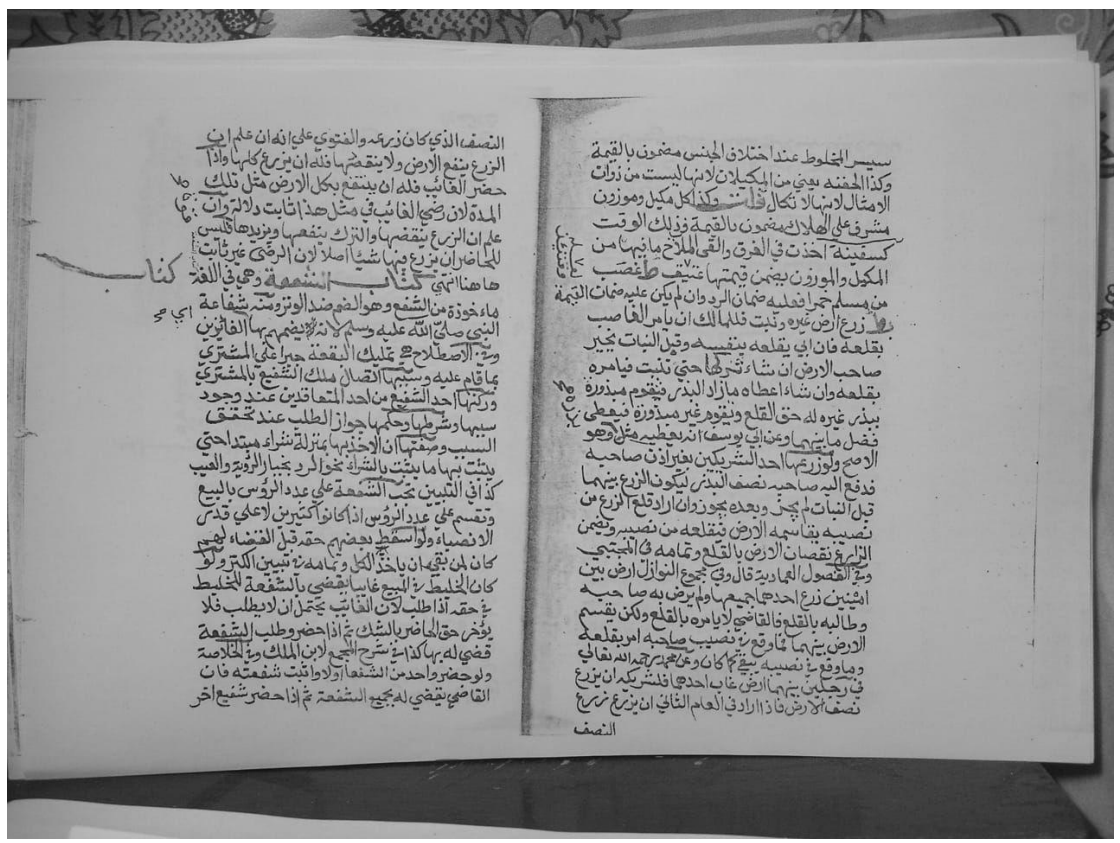 سيسر المخلوط عند اختلاف الجنس مضمون بالقيمة
وكذا الحفنه يعني من المكيلات لانها ليست من ذوات
الامثال لانها لا تكال قلت وكذا كل مكيل وموزون
مشرف على الهلاك مضمون بالقيمة وذلك الوقت
كسفينة اخذت في الغرق والقى الملاح ما فيها من
المكيل والموزون يضمن قيمتها غصب
من مسلم خمرا فعليه ضمان الرد وان لم يكن عليه ضمان القيمة
زرع ارض غيره ونبت فللمالك ان يامر الغاصب
بقلعه فان ابي يقلعه بنفسه وقبل النبات يخير
صاحب الارض ان شاء تركها حتي تنبت فيامره
بقلعه وان شاء اعطاه ما زاد البذر فيقوم مبذورة
ببذر غيره له حق القلع وتقوم غير مبذورة فيعطى
فضل ما بينهما وعن ابي يوسف انه يعطيه مثله وهو
الاصح ولو زرعها احد الشريكين بغير اذن صاحبه
فدفع اليه صاحبه نصف البذر ليكون الزرع بينهما
قبل النبات لم يجز وبعده يجوز وان اراد قلع الزرع من
نصيبه يقاسمه الارض فيقلعه من نصيبه ويضمن
الزارع نقصان الارض بالقلع وتمامه في المجتبي
وفي الفصول العمادية قال وفي مجموع النوازل ارض بين
اثنين زرع احدهما جميعها ولم يرض به صاحبه
وطالبه بالقلع فالقاضي لا يامره بالقلع ولكن يقسم
الارض بينهما فما وقع في نصيب صاحبه امر بقلعه
وما وقع في نصيبه يبقي كما كان وعن محمد رحمه الله تعالي
في رجلين بينهما ارض غاب احدهما فلشريكه ان يزرع
نصف الارض فاذا اراد في العام الثاني ان يزرع زرع
النصف
النصف الذي كان زرعه والفتوي علي انه ان علم ان
الزرع ينفع الارض ولا ينقصها فله ان يزرع كلها واذا
حضر الغائب فله ان ينتفع بكل الارض مثل تلك
المدة لان رضي الغائب في مثل هذا ثابت دلالة وان
علم ان الزرع ينقصها والترك ينفعها ويزيدها فليس
للحاضر ان يزرع فيها شيئا اصلا لان الرضى غير ثابت
ها هنا انتهي كتاب الشفعة وهي في اللغة
ماءخوذة من الشفع وهو الضم ضد الوتر ومنه شفاعة
النبي صلى الله عليه وسلم لانه يضمهم بها الفائزين
وفي الاصطلاح هي تمليك البقعة جبرا علي المشتري
بما قام عليه وسببها اتصال ملك الشفيع بالمشتري
وركنها اخذ الشفيع من احد المتعاقدين عند وجود
سببها وشرطها وحكمها جواز الطلب عند تحقق
السبب وصفتها ان الاخذ بها بمنزلة شراء مبتدا حتي
يثبت بها ما يثبت بالشراء نحو الرد بخيار الروية والعيب
كذا في التبيين تجب الشفعة علي عدد الرؤس بالبيع
وتقسم علي عدد الرؤس اذا كانوا كثيرين لا علي قدر
الانصباء ولو اسقط بعضهم حقه قبل القضاء لهم
كان لمن بقي ان ياخذ الكل وتمامه في تبيين الكنز ولو
كان الخليط في المبيع غايبا يقضي بالشفعة للخليط
في حقه اذا طلب لان الغائب يحتمل ان لا يطلب فلا
يؤخر حق الحاضر بالشك ثم اذا حضر وطلب الشفعة
قضي له بها كذا في شرح المجمع لابن الملك وفي الخلاصة
ولو حضر واحد من الشفعا اولا واثبت شفعته فان
القاضي يقضي له بجميع الشفعة ثم اذا حضر شفيع اخر
كتاب